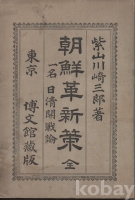 紫山川崎三郎著
朝鮮革新策 全
一名 日清開戰論
東京 博文館藏版
kobay